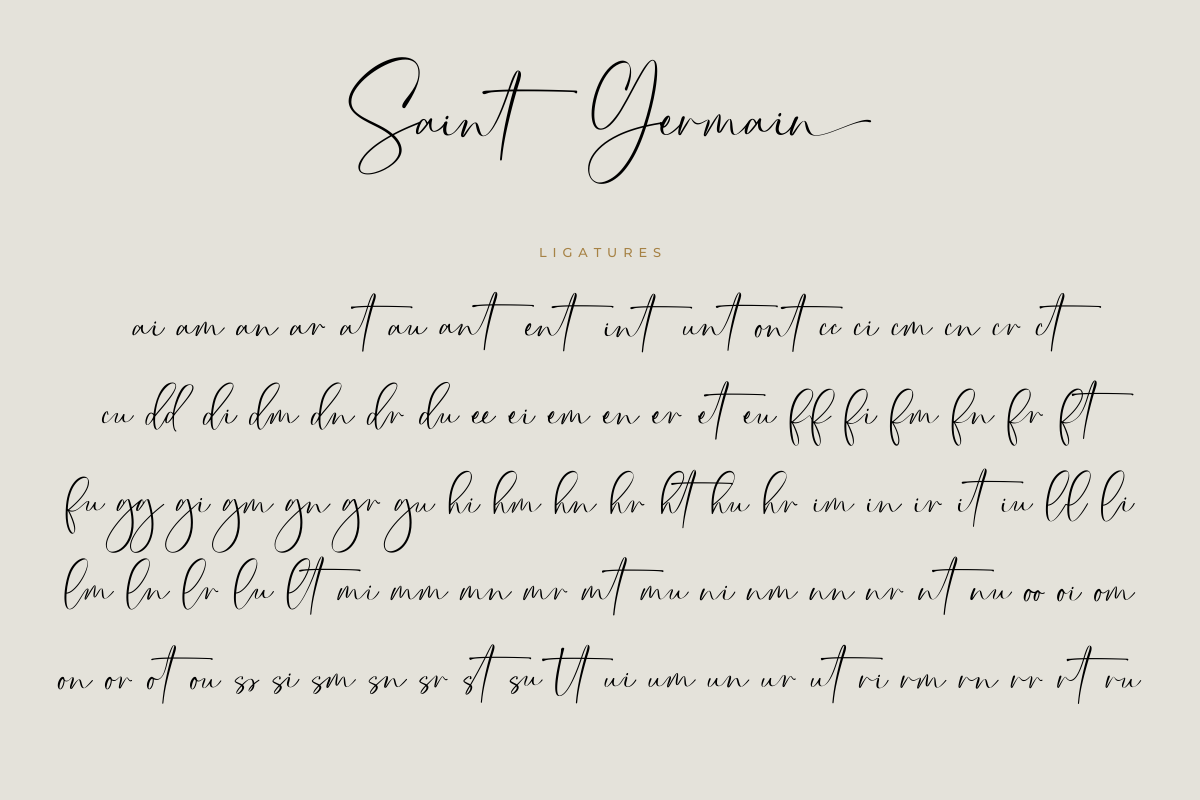 Saint Germain
LIGATURES
ai am an ar at au ant ent int unt ont cc ci cm cn cr ct
cu dd di dm dn dr du ee ei em en er et eu ff fi fm fn fr ft
fu gg gi gm gn gr gu hi hm hn hr ht hu hr im in ir it iu ll li
lm ln lr lu lt mi mm mn mr mt mu ni nm nn nr nt nu oo oi om
on or ot ou ss si sm sn sr st su tt ui um un ur ut ri rm rn rr rt ru